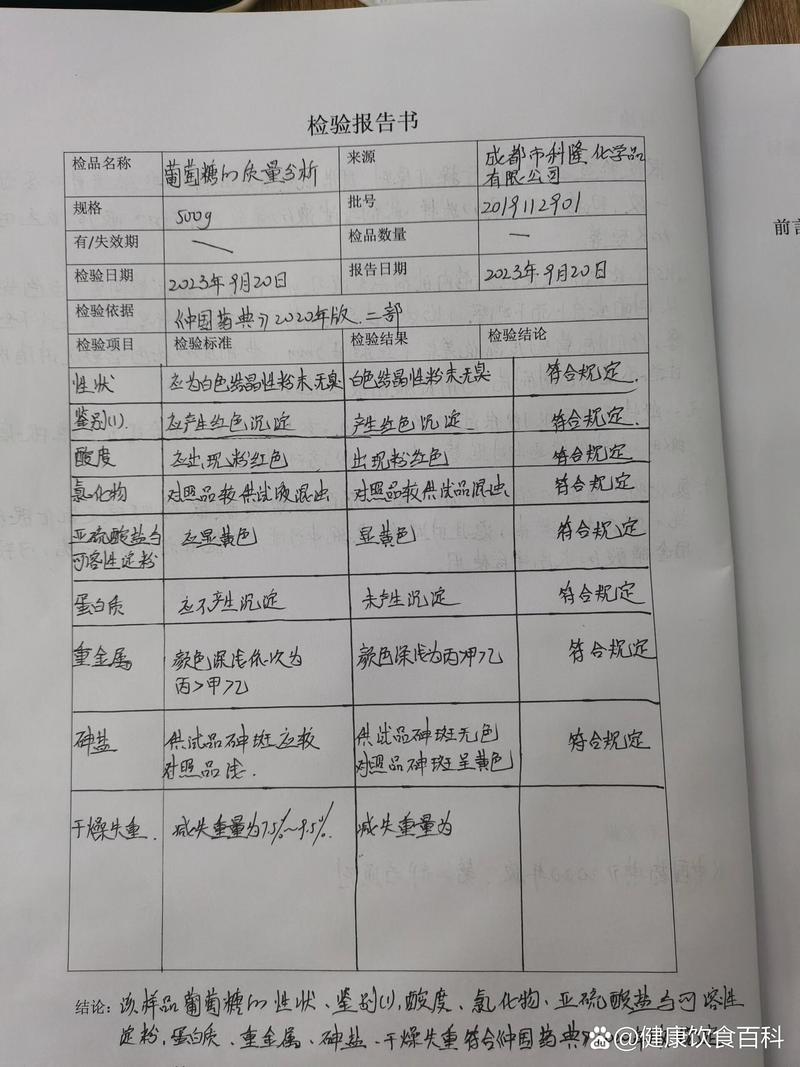 检验报告书
检品名称 葡萄糖的质量分析 来源 成都市科隆化学品
有限公司
规格 500g 批号 2019112901
有/失效期 — 检品数量 —
检验日期 2023年9月20日 报告日期 2023年9月20日
检验依据 《中国药典》2020年版.二部
检验项目 检验标准 检验结果 检验结论
性状 应为白色结晶性粉末.无臭 白色结晶性粉末无臭 符合规定.
鉴别(1). 应产生红色沉淀 产生红色沉淀. 符合规定.
酸度 应出现粉红色 出现粉红色 符合规定
氯化物 对照品较供试液混浊 对照品较供试品混浊. 符合规定
亚硫酸盐与 应显黄色 显黄色 符合规定
可溶性淀粉
蛋白质 应不产生沉淀 未产生沉淀 符合规定
重金属 颜色深浅依次为 颜色深浅为丙>甲>乙 符合规定
丙>甲>乙
砷盐 供试品砷斑应较 供试品砷斑无色 符合规定
对照品浅. 对照品砷斑呈黄色
干燥失重. 减失重量为7.5%~9.5%. 减失重量为
结论: 该样品葡萄糖的性状、鉴别(1),酸度、氯化物、亚硫酸盐与可溶性
淀粉,蛋白质、重金属、砷盐、干燥失重符合《中国药典》
前言
@健康饮食百科